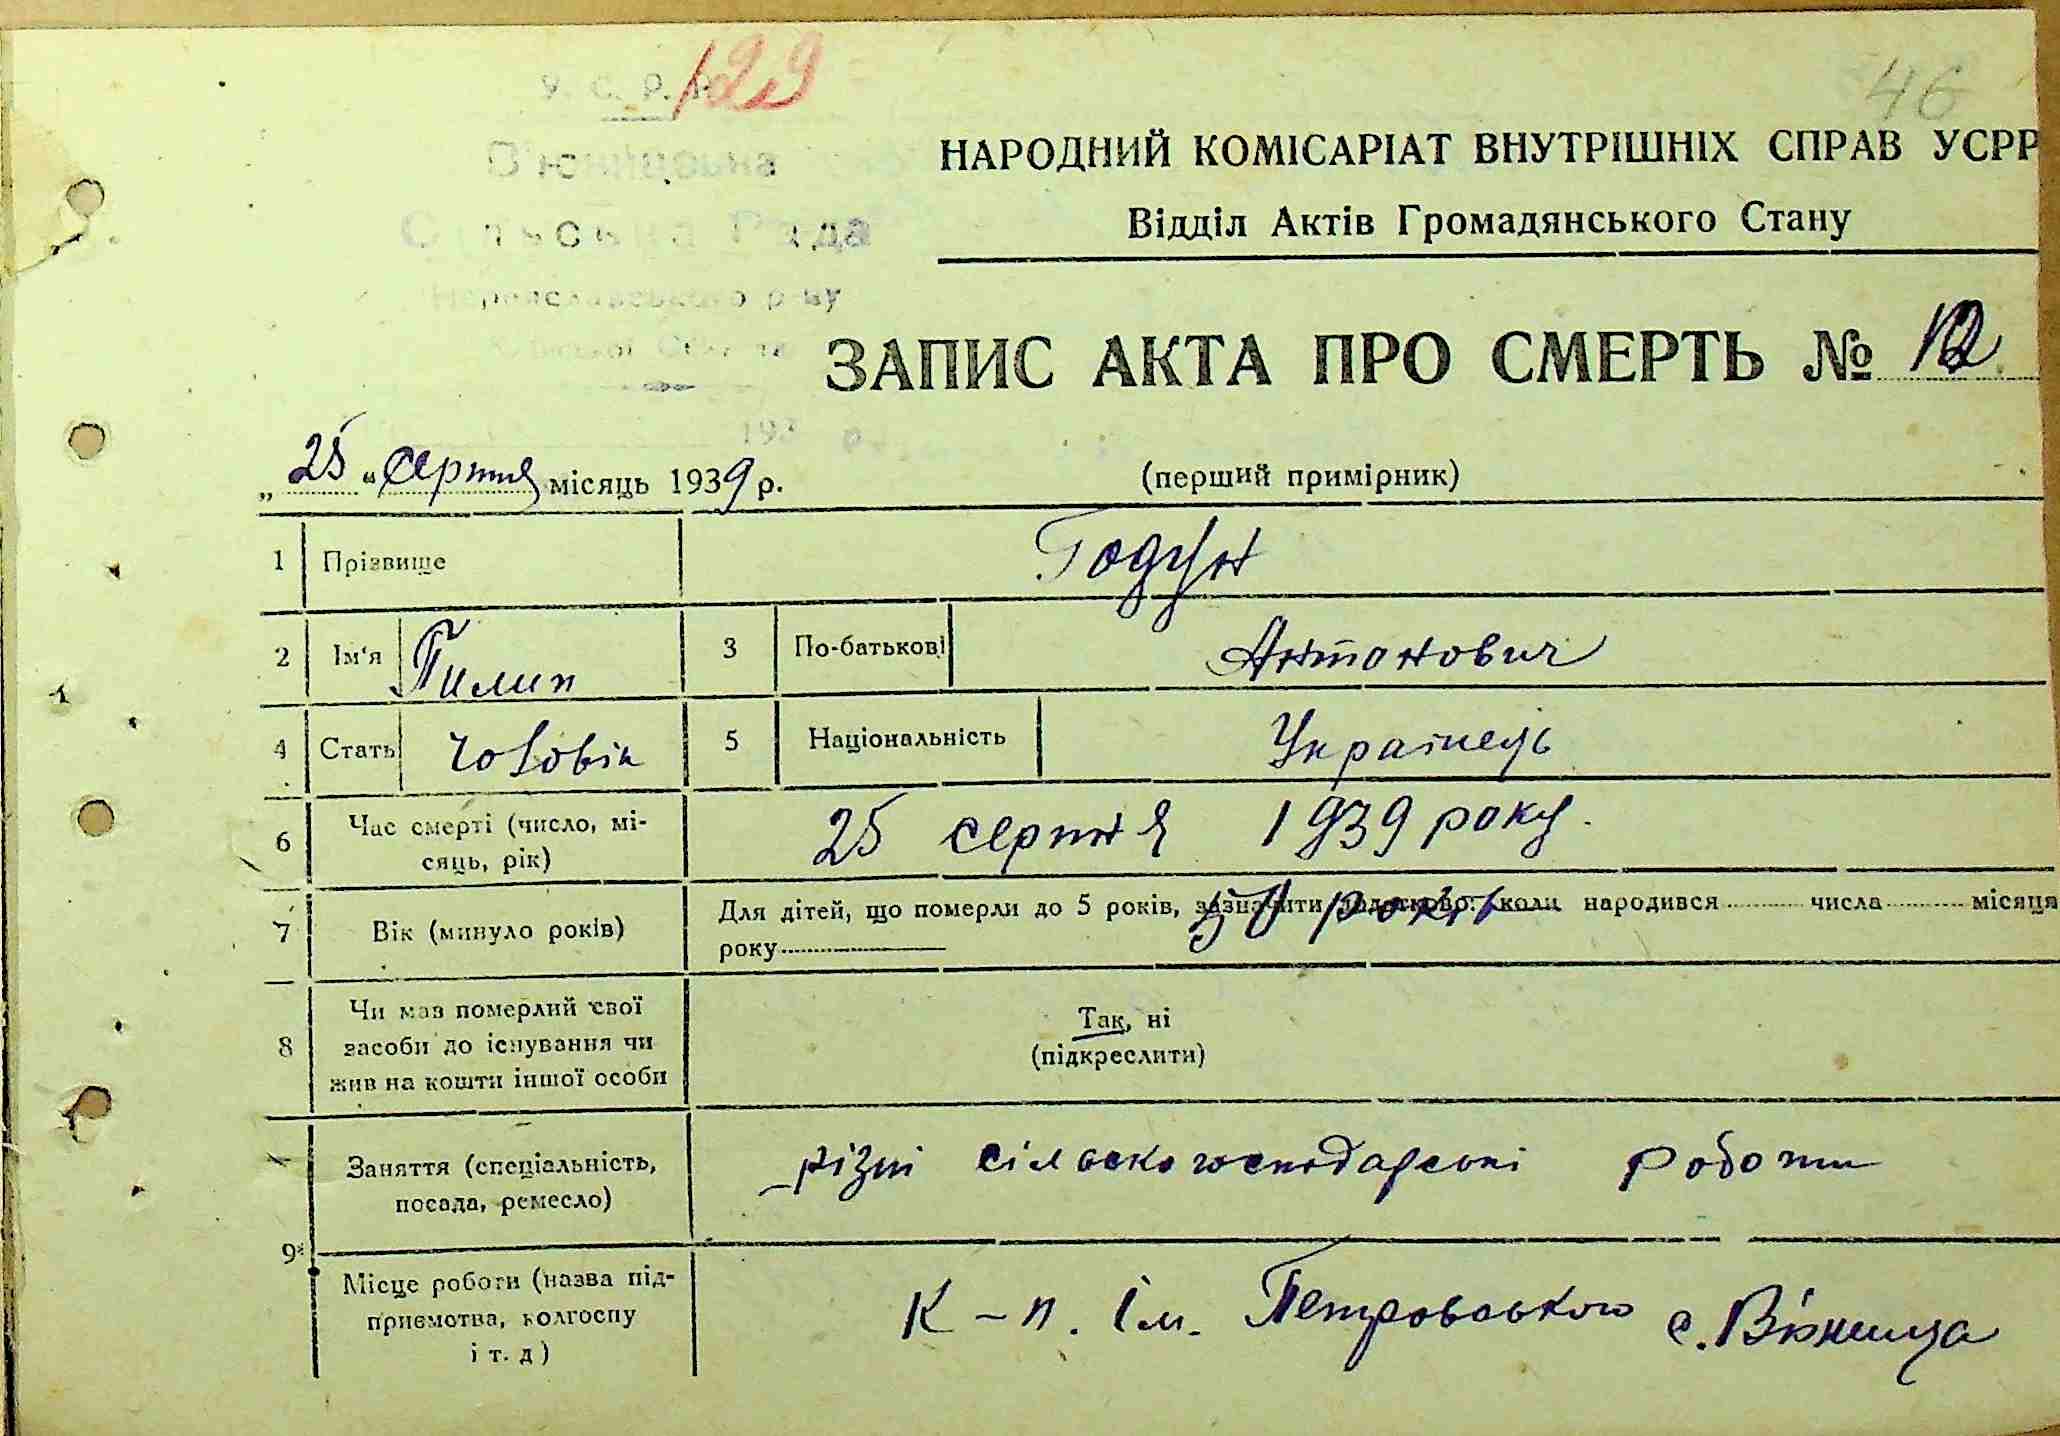 У. С. Р. Р.
129
46
В'юнищанська
Сільська Рада
Переяславського р-ну
Київської Області
193 р.
НАРОДНИЙ КОМІСАРІАТ ВНУТРІШНІХ СПРАВ УСРР
Відділ Актів Громадянського Стану
ЗАПИС АКТА ПРО СМЕРТЬ № 12
„25" серпня місяць 1939 р.
(перший примірник)
1 Прізвище Годун
2 Ім'я Пилип 3 По-батькові Антонович
4 Стать чоловік 5 Національність Українець
6 Час смерті (число, мі-
сяць, рік) 25 серпня 1939 року.
7 Вік (минуло років) Для дітей, що померли до 5 років, зазначити додатково: коли народився числа місяця
року
50 років
8 Чи мав померлий свої
засоби до існування чи
жив на кошти іншої особи
Так, ні
(підкреслити)
9 Заняття (спеціальність,
посада, ремесло) різні сільськогосподарські роботи
Місце роботи (назва під-
приємства, колгоспу
і т. д) К-п. ім. Петровського с. В'юнища